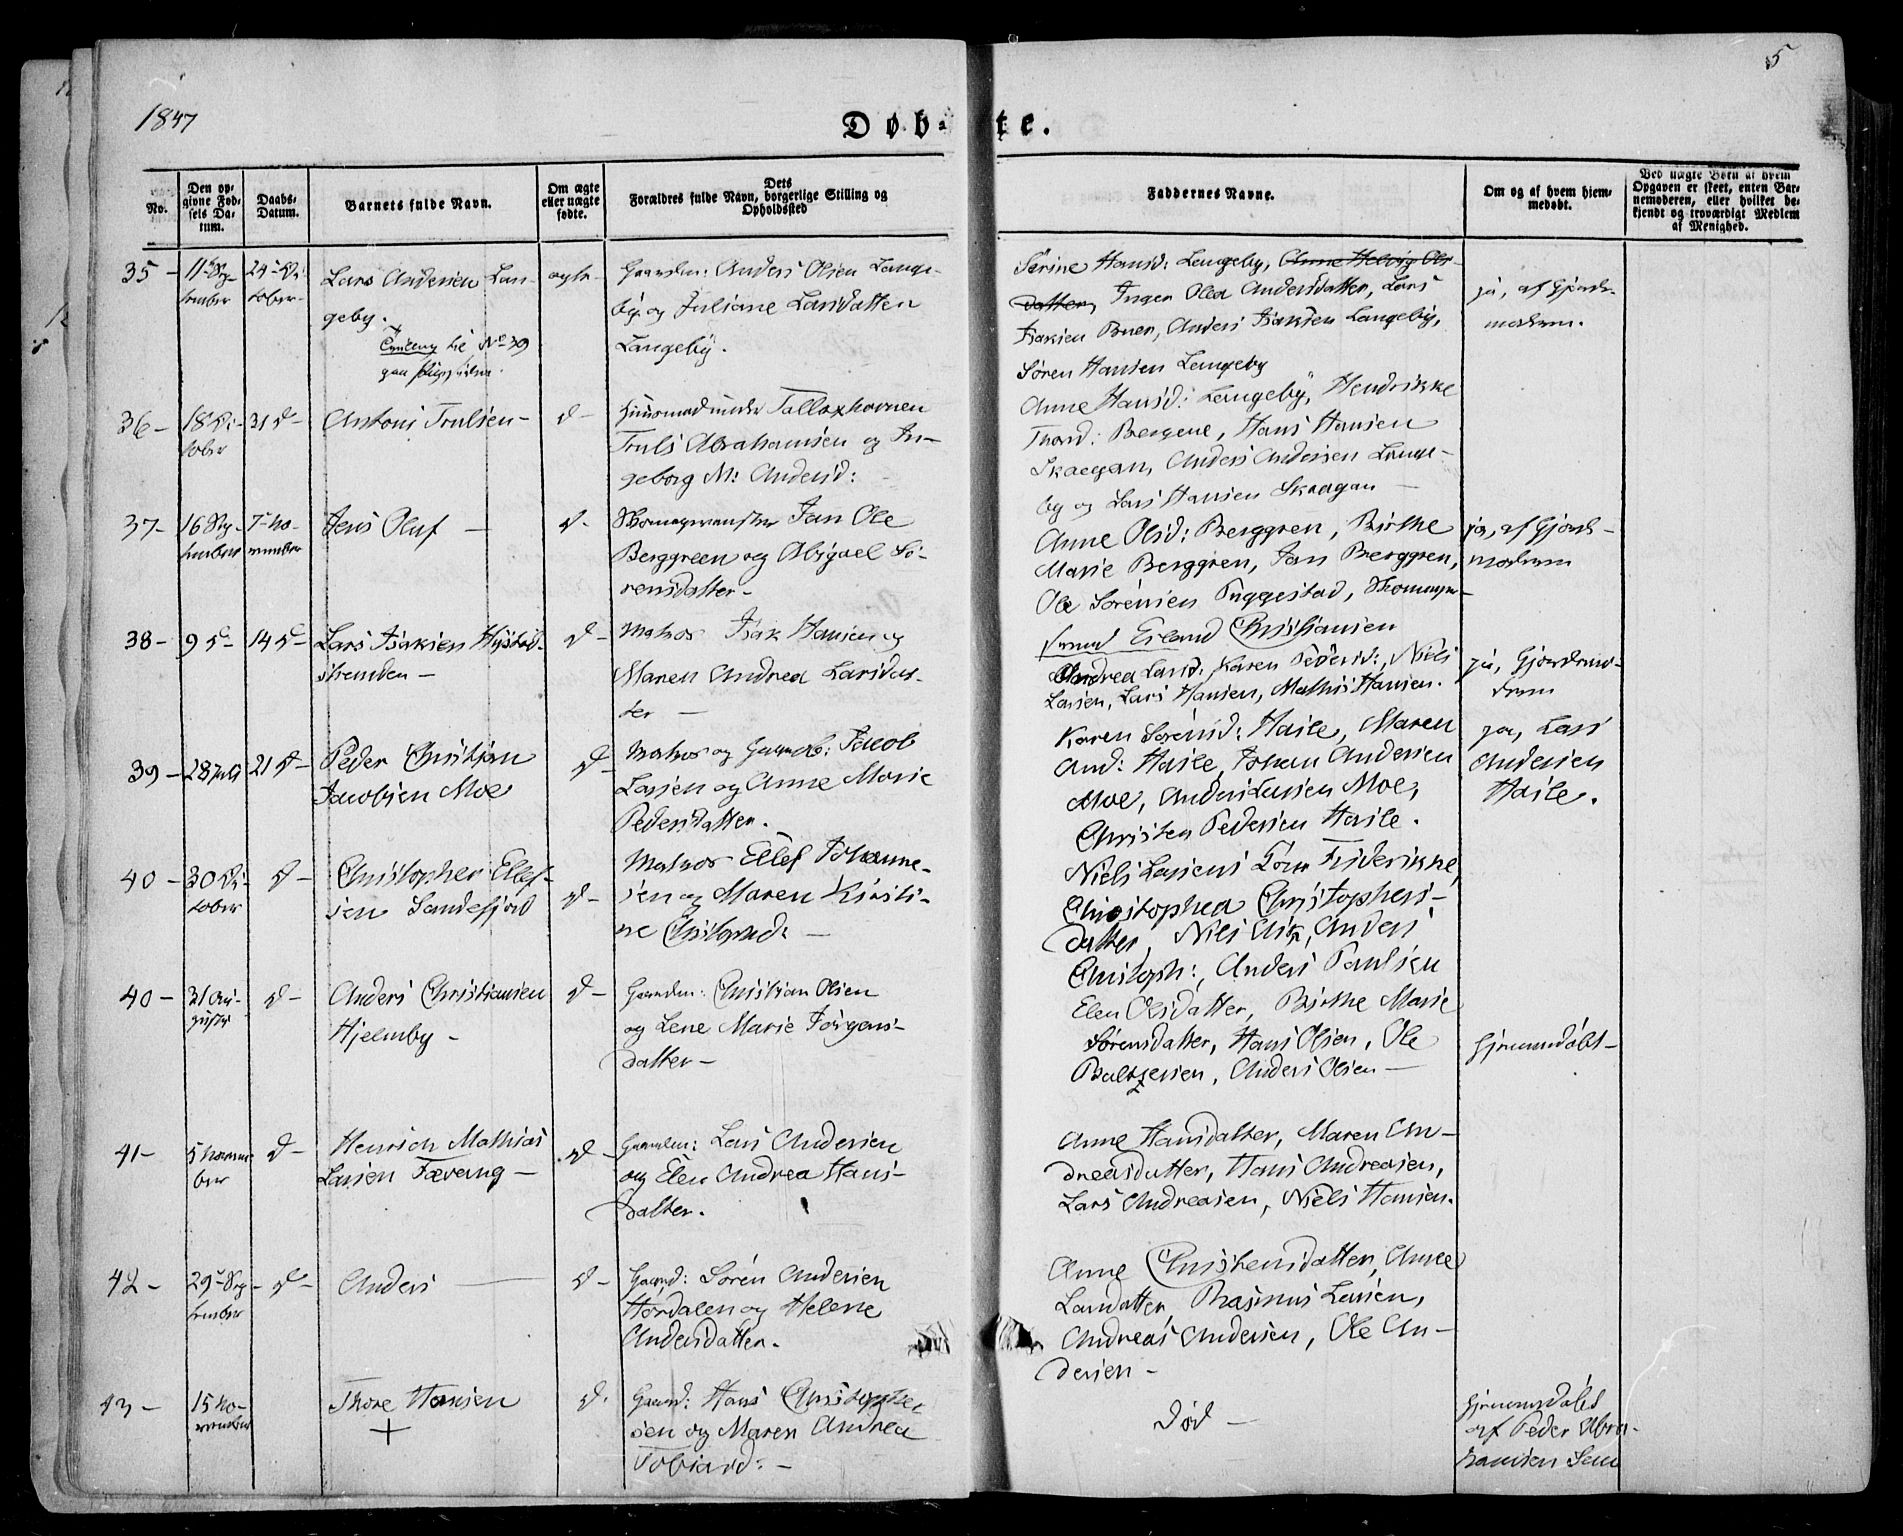 5
1847
Døb-te.
No.
Den op-
givne Fød-
sels Da-
tum.
Daabs-
Datum.
Barnets fulde Navn.
Om ægte
eller uægte
fødte.
Dets
Forældres fulde Navn, borgerlige Stilling og
Opholdssted
Faddernes Navne.
Om og af hvem hjem-
medøbt.
Ved uægte Børn af hvem
Opgaven er skeet, enten Bar-
nemoderen, eller hvilket be-
kjendt og troværdigt Medlem
af Menighed.
35 -
11te Sep-
tember
24de Oc-
tober-
Lars Andersen Lan-
geby.
No 39
ægte-
Gaardm: Anders Olsen Lange-
by og Juliane Larsdatter
Langeby.
Sørine Hansd: Langeby, Anne Helvig Ols-
datter, Inger Olea Andersdatter, Lars
Isaksen Buer, Anders Isaksen Langeby,
Søren Hansen Langeby
ja, af Gjorde-
moderen.
36-
18 Oc-
tober
31 d-
Antoni Trulsen-
d-
Huusmand under Tallaxhavnen
Truls Abrahamsen og In-
geborg M: Andersd: -
Anne Hansd: Langeby, Hendrikke
Thord: Bergene, Hans Hansen
Skaegan, Anders Andersen Lange-
by og Lars Hansen Skaagan -
37-
16 Sep-
tember
7de No-
vember
Jens Oluf -
d-
Jan Ole
Berggreen og Abigael Sø-
rensdatter-
Anne Olsd: Berggren, Birthe
Marie Berggren, Jan Berggren,
Ole Sørensen Puggestad,
svend Erland Christiansen
ja, af Gjorde-
moderen
38-
9 d-
14 d-
Lars Isaksen Hystad-
stranden -
d-
Matros Isak Hansen og
Maren Andrea Larsdat-
ter -
Andrea Larsd: Karen Pedersd:, Niels
Larsen, Lars Hansen, Mathis Hansen.
ja, Gjordemo-
deren
39-
28 Juli
21 d-
Peder Christian
Jacobsen Moe
d-
Matros og Gaardb: Jacob
Larsen og Anne Marie
Pedersdatter.
Karen Sørensd: Hasle, Maren
And: Hasle, Johan Andersen
Moe, Anders Larsen Moe,
Christen Pedersen Hasle.
ja, Lars
Andersen
Hasle.
40-
30 Oc-
tober
d-
Christopher Ellef-
sen Sandefjord
d-
Matros Ellef Johanne-
sen og Maren Kirsti-
ne Christophd: -
Niels Larsens Kone Friderikke,
Christophea Christophers-
datter, Niels Erik, Anders
Christoph:, Anders Paulsen
40-
31 Au-
gust
d-
Anders Christiansen
Hjelmby-
d-
Gaardm: Christian Olsen
og Lene Marie Jørgens-
datter-
Elen Olsdatter, Birthe Marie
Sørensdatter, Hans Olsen, Ole
Baltzersen, Anders Olsen-
Hjemmedøbt-
41-
5 Novem-
ber
d-
Henrich Mathias
Larsen Tæverng-
d-
Gaardm: Lars Andersen
og Elen Andrea Hans-
datter.
Anne Hansdatter, Maren An-
dreasdatter, Hans Andreasen,
Lars Andreasen, Niels Hansen.
42-
29de Sep-
tember
d-
Anders -
d-
Gaard: Søren Andersen
Hørdalen og Helene
Andersdatter.
Anne Christensdatter, Anne
Larsdatter, Rasmus Larsen,
Andreas Andersen, Ole An-
dersen-
43-
15 No-
vember
Thore Hansen
+
d.
Gaard: Hans Christopher-
sen og Maren Andrea
Tobiasd: -
død -
Hjemmedøbt
af Peder Abra-
hamsen Sem